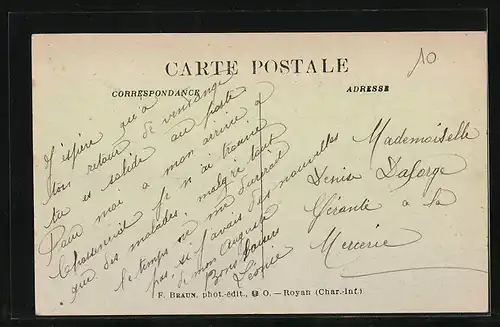 10
CARTE POSTALE
CORRESPONDANCE
ADRESSE
J'espère qu'à
ton retour de vendange
tu es solide au poste
Pour moi à mon arrivée à
je n'ai trouvé
que des malades, malgré tout
le temps ne me durerait
pas, si j'avais des nouvelles
de mon Auguste
Bons baisers
Léonice
Mademoiselle
Denise Daforge
Gérante à la
Mercerie
F. BRAUN, phot.-édit., O. — Royan (Char.-Inf.)